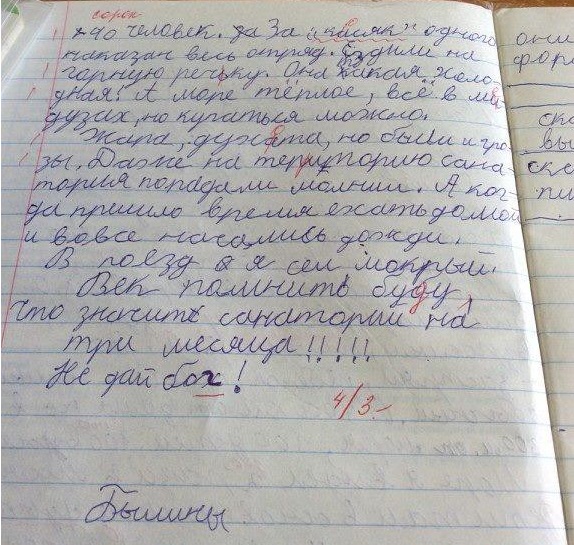 сорок
40 человек. За "косяк" одного
наказан весь отряд. Ездили на
горную речку. Она такая холо-
дная! А море тёплое, всё в ме-
дузах, но купаться можно.
Жара, духота, но были и гро-
зы. Даже на территорию сана-
тория попадали молнии. А ког-
да пришло время ехать домой
и вовсе начались дожди.
В поезд я сел мокрый.
Век помнить буду,
что значить санаторий на
три месяца!!!!!
Не дай бох!
4/3-
Былины
они
фор
ска
вы
ске
пи